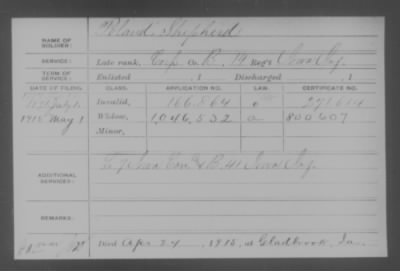 NAME OF SOLDIER: Poland, Shepherd
SERVICE: Late rank, Corp. Co. B, 14 Reg't Iowa Inf.
TERM OF SERVICE: Enlisted , 1 Discharged , 1
DATE OF FILING. CLASS. APPLICATION NO. LAW. CERTIFICATE NO.
July Invalid, 166.864 271.614
1915 May 1 Widow, 1,046,532 a 800607
Minor,
ADDITIONAL SERVICES: 7 Iowa Cav. & B. 41 Iowa Inf.
REMARKS:
Died Apr 24, 1915, at Gladbrook, Ia.